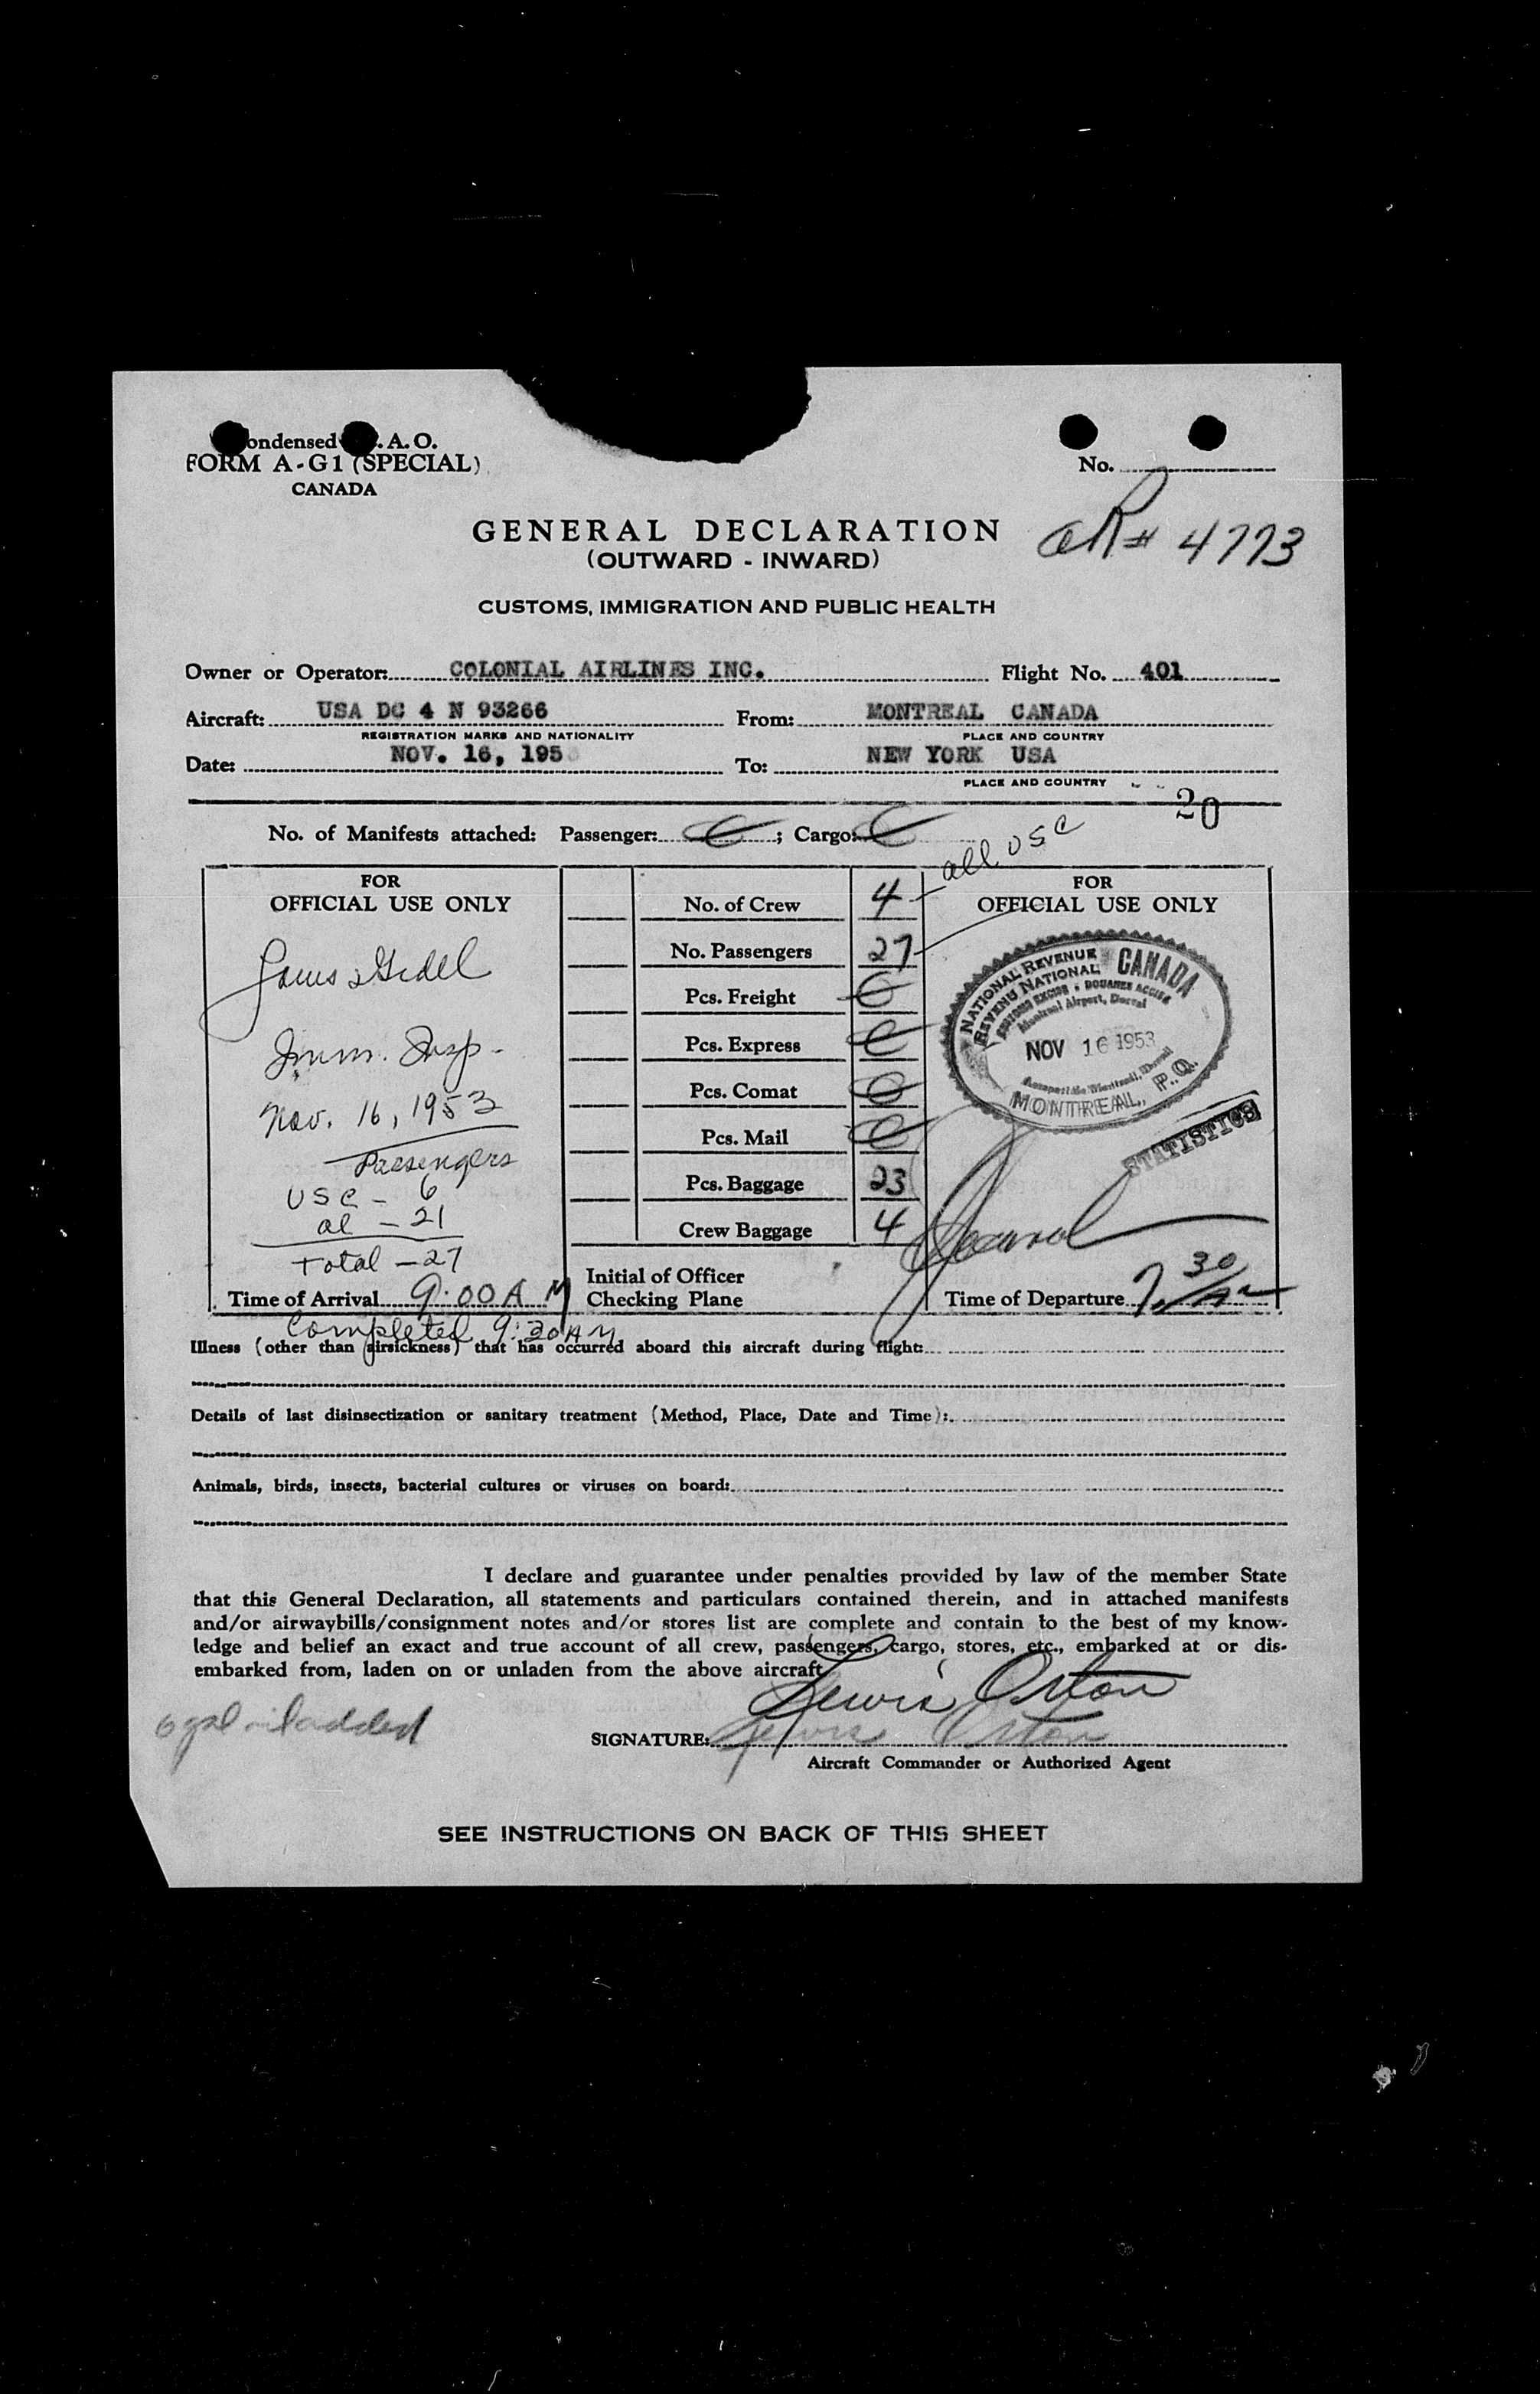 ondensed .A.O.
FORM A-G1 (SPECIAL)
CANADA
No.
GENERAL DECLARATION
(OUTWARD - INWARD)
# 4773
CUSTOMS, IMMIGRATION AND PUBLIC HEALTH
Owner or Operator: COLONIAL AIRLINES INC. Flight No. 401
Aircraft: USA DC 4 N 93266 From: MONTREAL CANADA
REGISTRATION MARKS AND NATIONALITY PLACE AND COUNTRY
Date: NOV. 16, 195 To: NEW YORK USA
PLACE AND COUNTRY
20
No. of Manifests attached: Passenger: ; Cargo:
all USC
FOR
OFFICIAL USE ONLY
Imm. Insp.
Nov. 16, 1953
Passengers
USC - 6
al - 21
Total - 27
Time of Arrival 9:00 A M
Completed 9:30 AM
No. of Crew 4
No. Passengers 27
Pcs. Freight
Pcs. Express
Pcs. Comat
Pcs. Mail
Pcs. Baggage 23
Crew Baggage 4
Initial of Officer
Checking Plane
FOR
OFFICIAL USE ONLY
NATIONAL REVENUE CANADA
REVENU NATIONAL
CUSTOMS EXCISE • DOUANES ACCISE
Montreal Airport, Dorval
NOV 16 1953
MONTREAL, P.Q.
STATISTICS
Time of Departure 7 30
Illness (other than airsickness) that has occurred aboard this aircraft during flight:
Details of last disinsectization or sanitary treatment (Method, Place, Date and Time):
Animals, birds, insects, bacterial cultures or viruses on board:
I declare and guarantee under penalties provided by law of the member State
that this General Declaration, all statements and particulars contained therein, and in attached manifests
and/or airwaybills/consignment notes and/or stores list are complete and contain to the best of my know-
ledge and belief an exact and true account of all crew, passengers, cargo, stores, etc., embarked at or dis-
embarked from, laden on or unladen from the above aircraft
Lewis Orton
SIGNATURE: Lewis Orton
Aircraft Commander or Authorized Agent
SEE INSTRUCTIONS ON BACK OF THIS SHEET